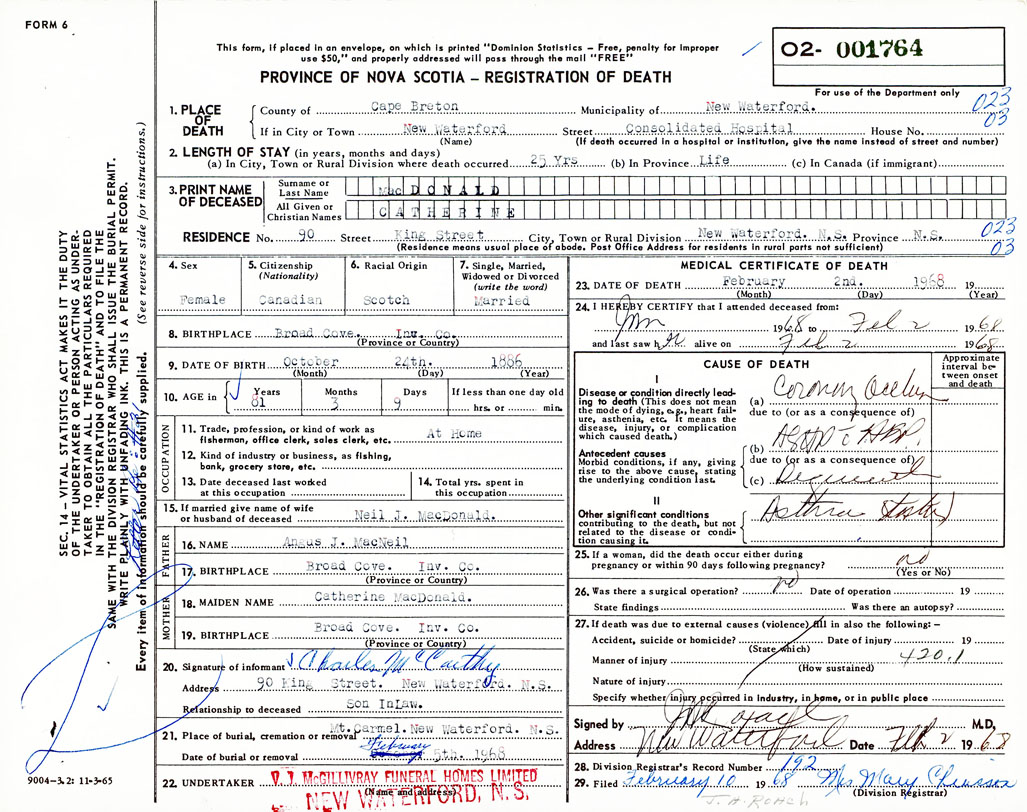 FORM 6
This form, if placed in an envelope, on which is printed "Dominion Statistics – Free, penalty for improper
use $50," and properly addressed will pass through the mail "FREE"
PROVINCE OF NOVA SCOTIA – REGISTRATION OF DEATH
O2- 001764
For use of the Department only
023
03
1. PLACE OF DEATH
County of Cape Breton Municipality of New Waterford.
If in City or Town New Waterford Street Consolidated Hospital House No.
(Name) (If death occurred in a hospital or institution, give the name instead of street and number)
2. LENGTH OF STAY (in years, months and days)
(a) In City, Town or Rural Division where death occurred 25 Yrs (b) In Province Life (c) In Canada (if immigrant)
3. PRINT NAME OF DECEASED
Surname or Last Name MacDONALD
All Given or Christian Names CATHERINE
RESIDENCE No. 90 Street King Street City, Town or Rural Division New Waterford. N.S. Province N.S.
(Residence means usual place of abode. Post Office Address for residents in rural parts not sufficient)
023
03
4. Sex
Female
5. Citizenship
(Nationality)
Canadian
6. Racial Origin
Scotch
7. Single, Married,
Widowed or Divorced
(write the word)
Married
8. BIRTHPLACE Broad Cove. Inv. Co.
(Province or Country)
9. DATE OF BIRTH October 24th. 1886
(Month) (Day) (Year)
10. AGE in
Years 81
Months 3
Days 9
If less than one day old
hrs. or min.
OCCUPATION
11. Trade, profession, or kind of work as
fisherman, office clerk, sales clerk, etc. At Home
12. Kind of industry or business, as fishing,
bank, grocery store, etc.
13. Date deceased last worked
at this occupation
14. Total yrs. spent in
this occupation
15. If married give name of wife
or husband of deceased Neil J. MacDonald.
FATHER
16. NAME Angus J. MacNeil
17. BIRTHPLACE Broad Cove. Inv. Co.
(Province or Country)
MOTHER
18. MAIDEN NAME Catherine MacDonald.
19. BIRTHPLACE Broad Cove. Inv. Co.
(Province or Country)
20. Signature of informant Charles McCarthy
Address 90 King Street. New Waterford. N.S.
Relationship to deceased Son InLaw.
21. Place of burial, cremation or removal Mt.Carmel.New Waterford. N.S.
Date of burial or removal February 5th. 1968
22. UNDERTAKER V. J. McGILLIVRAY FUNERAL HOMES LIMITED
(Name and address)
NEW WATERFORD, N. S.
MEDICAL CERTIFICATE OF DEATH
23. DATE OF DEATH February 2nd. 1968 19
(Month) (Day) (Year)
24. I HEREBY CERTIFY that I attended deceased from:
Jan 1968 to Feb 2 1968
and last saw her alive on Feb 2 1968
CAUSE OF DEATH
Approximate
interval be-
tween onset
and death
I
Disease or condition directly lead-
ing to death (This does not mean
the mode of dying, e.g., heart fail-
ure, asthenia, etc. It means the
disease, injury, or complication
which caused death.)
(a) Coronary
due to (or as a consequence of)
Antecedent causes
Morbid conditions, if any, giving
rise to the above cause, stating
the underlying condition last.
(b)
due to (or as a consequence of)
(c)
II
Other significant conditions
contributing to the death, but not
related to the disease or condi-
tion causing it.
Asthma
25. If a woman, did the death occur either during
pregnancy or within 90 days following pregnancy? no
(Yes or No)
26. Was there a surgical operation? no Date of operation 19
State findings Was there an autopsy?
27. If death was due to external causes (violence) fill in also the following:–
Accident, suicide or homicide? Date of injury 19
(State which)
Manner of injury 420.1
(How sustained)
Nature of injury
Specify whether injury occurred in industry, in home, or in public place
Signed by M.D.
Address New Waterford Date Feb 2 1968
28. Division Registrar's Record Number 192
29. Filed February 10 1968 Mrs Mary
(Division Registrar)
SEC. 14 – VITAL STATISTICS ACT MAKES IT THE DUTY
OF THE UNDERTAKER OR PERSON ACTING AS UNDER-
TAKER TO OBTAIN ALL THE PARTICULARS REQUIRED
IN THE "REGISTRATION OF DEATH" AND TO FILE THE
SAME WITH THE DIVISION REGISTRAR WHO SHALL ISSUE THE BURIAL PERMIT.
WRITE PLAINLY WITH UNFADING INK. THIS IS A PERMANENT RECORD.
Every item of information should be carefully supplied. (See reverse side for instructions.)
9004-3.2: 11-3-65